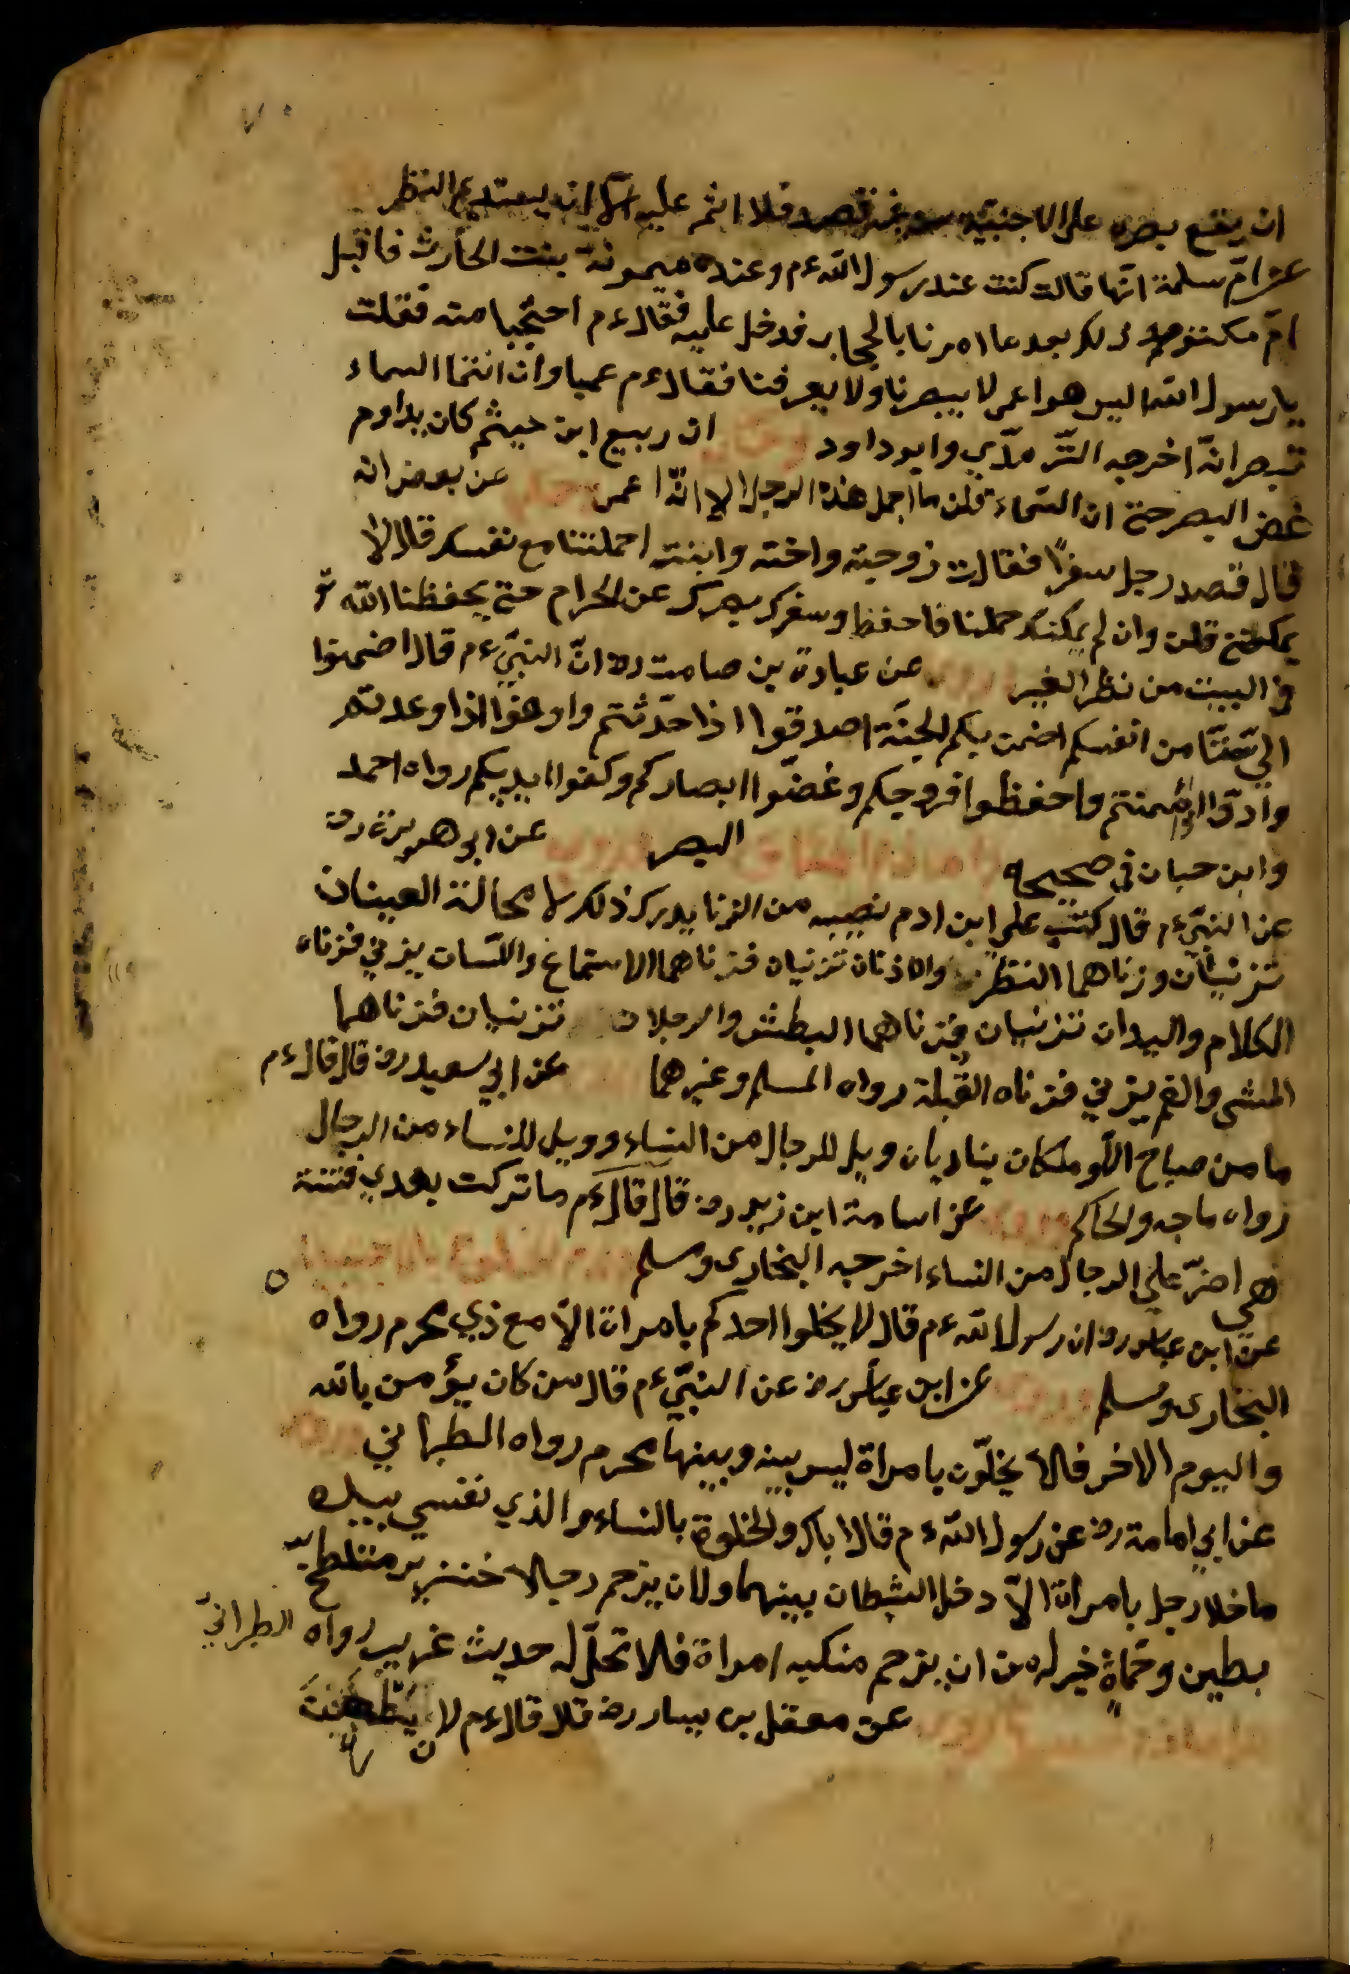 ان يقع بصره على الاجنبية من غير قصد فلا اثم عليه الا ان يستديم النظر
عن امّ سلمة انّها قالت كنت عند رسول اللّه ءم وعنده ميمونة بنت الحارث فاقبل
امّ مكتوم وذلك بعد ما امرنا بالحجاب فدخل عليه فقال ءم احتجبا منه فقلت
يا رسول اللّه اليس هو اعمى لا يبصرنا ولا يعرفنا فقال ءم عميا وان انتما السماء
تبصرانّه اخرجه التّرمذّي وابو داود وحكى ان ربيع ابن خيثم كان يداوم
غض البصر حتى ان النساء قلن ما اجمل هذا الرجل الا انّه اعمى وحكى عن بعض انه
قال قصد رجل سفرًا فقالت زوجته واخته وابنته احملننا مع نفسك قال لا
يمكننى قلن وان لم يمكنك حملنا فاحفظ وسفرك بصرك عن الحرام حتى يحفظنا اللّه تع
في البيت من نظر الغير وروى عن عبادة بن صامت رض انّ النبيّ ءم قال اضمنوا
الي ستّا من انفسكم اضمن بكم الجنّة اصدقوا اذا حدّثتم واوفوا اذا وعدتم
وادّوا اذا ائتمنتم واحفظوا فروجكم وغضّوا ابصاركم وكفوا ايديكم رواه احمد
وابن حبان في صحيحه البصر وروى عن ابو هريرة رض
عن النبيّ ءم قال كتب على ابن ادم نصيبه من الزنا يدرك ذلك لا محالة العينان
تزنيان وزناهما النظر والاذنان تزنيان فزناهما الاستماع واللّسان يزني فزناه
الكلام واليدان تزنيان فزناهما البطش والرجلان تزنيان فزناهما
المشى والفم يزني فزناه القُبلة رواه المسلم وغيرهما عن ابي سعيد رض قال قال ءم
ما من صباح الّا وملكان يناديان ويل للرجال من النساء وويل للنساء من الرجال
رواه ماجه والحاكم وروى عن اسامة ابن زيد رض قال قال ءم ما تركت بعدي فتنة
هي اضرّ على الرجال من النساء اخرجه البخارى ومسلم
عن ابن عباس رض ان رسول اللّه ءم قال لا يخلوا احدكم بامراة الّا مع ذي محرم رواه
البخارى ومسلم وروى عن ابن عباس رض عن النبيّ ءم قال من كان يؤمن باللّه
واليوم الاخر فلا يخلّون بامراة ليس بينه وبينها محرم رواه الطبراني وروى
عن ابي امامة رض عن رسول اللّه ءم قال اياك والخلوة بالنساء والذي نفسي بيده
ما خلا رجل بامراة الّا دخل الشيطان بينهما ولان يزحم رجلا خنزير متلطخ
بطين وحَمأةٍ خير له من ان يزحم منكبه امراة فلا تحلّ له حديث غريب رواه الطبرانيّ
وروى عن معقل بن يسار رض قلا قال ءم لان